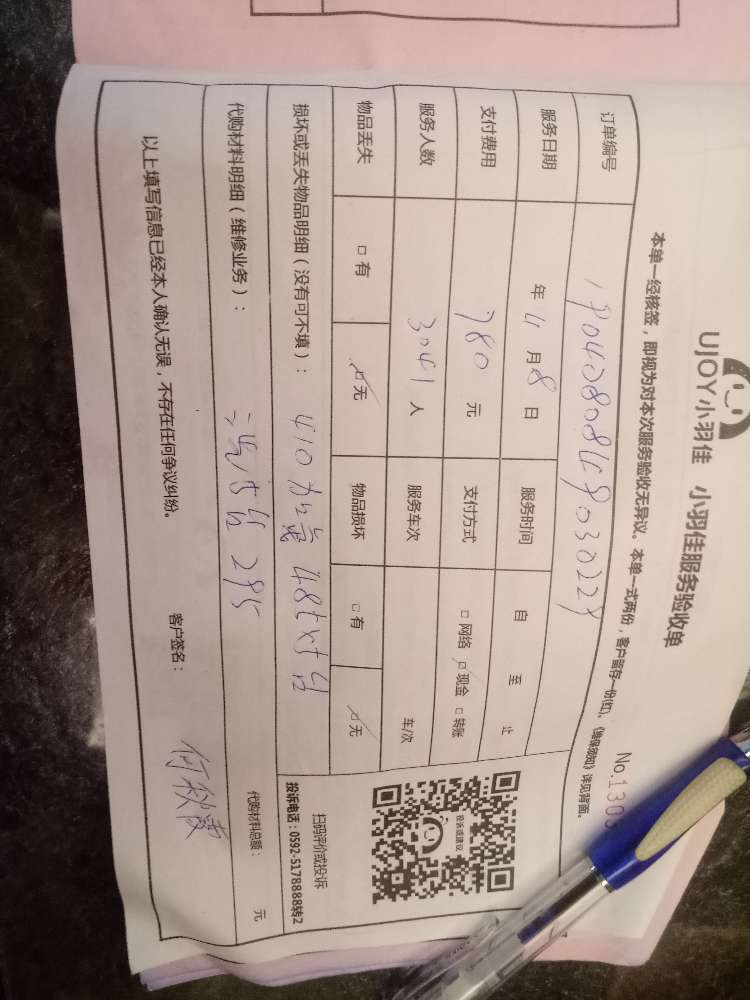 UJOY小羽佳 小羽佳服务验收单
No.1303
本单一经核签，即视为对本次服务验收无异议。本单一式两份，客户留存一份(红)。《维保须知》详见背面。
订单编号
服务日期 年 4 月 8 日 服务时间 自 至 止
支付费用 780 元 支付方式 □网络 ☑现金 □转账
服务人数 3041 人 服务车次 车/次
物品丢失 □有 ☑无 物品损坏 □有 ☑无
损坏或丢失物品明细（没有可不填）： 410加氟 485x1台
代购材料明细（维修业务）： 295 代购材料总额： 元
以上填写信息已经本人确认无误，不存在任何争议纠纷。
客户签名： 何秋霞
投诉或建议
扫码评价或投诉
投诉电话：0592-5178888转2